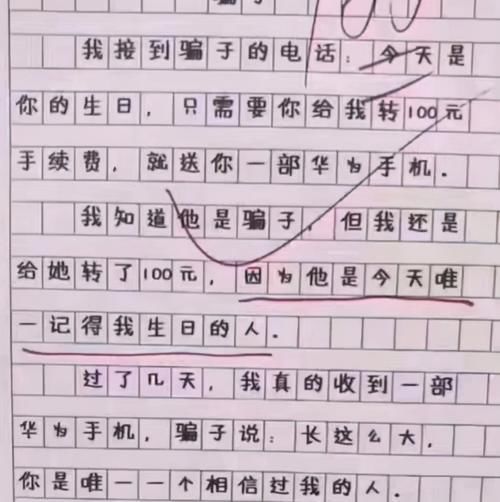 骗子
我接到骗子的电话：今天是
你的生日，只需要你给我转100元
手续费，就送你一部华为手机．
我知道他是骗子，但我还是
给她转了100元，因为他是今天唯
一记得我生日的人．
过了几天，我真的收到一部
华为手机，骗子说：长这么大，
你是唯一一个相信过我的人．